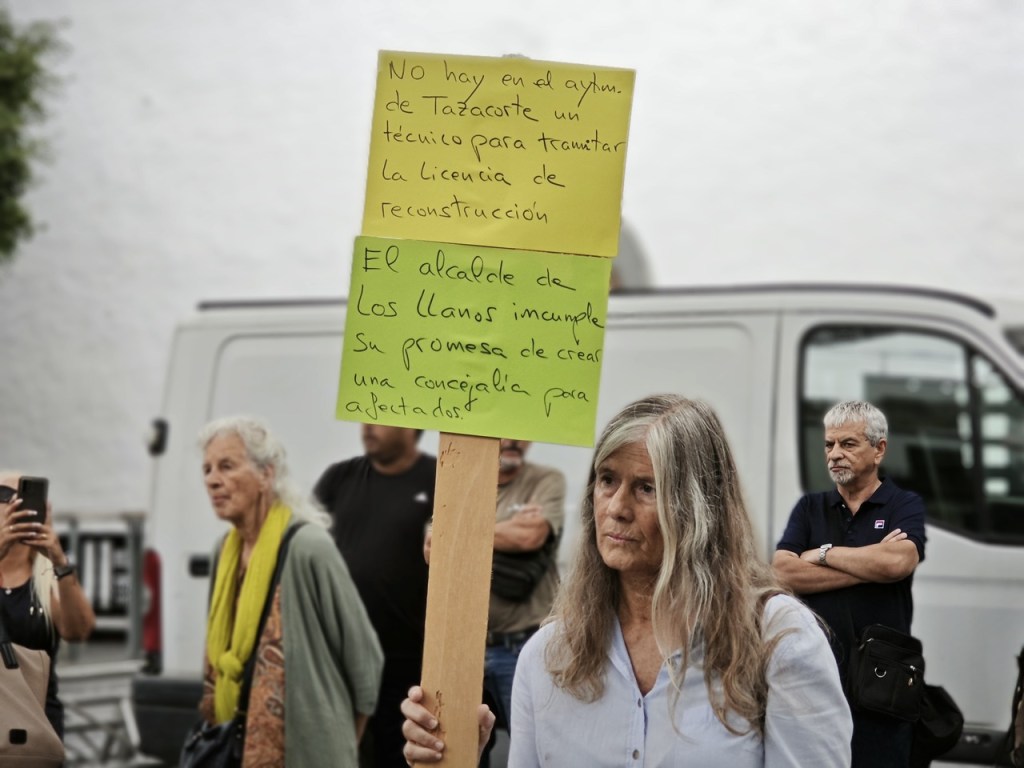 No hay en el aytm.
de Tazacorte un
técnico para tramitar
La Licencia de
reconstrucción
El alcalde de
Los Llanos incumple
su promesa de crear
una concejalía para
afectados.